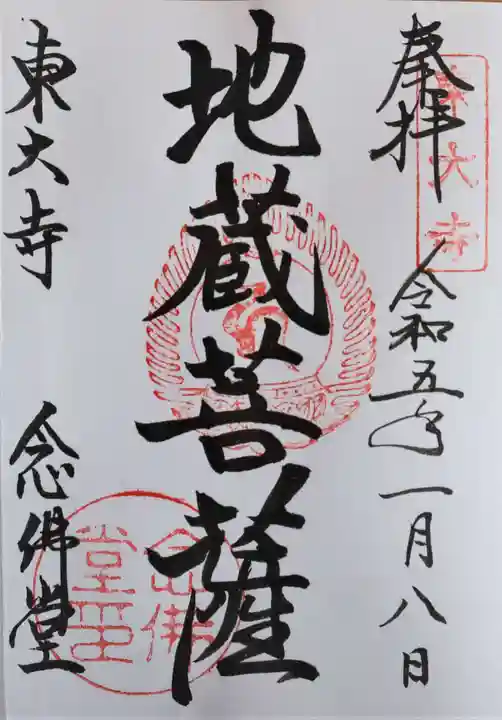 奉拝
東大寺
令和五年一月八日
地蔵菩薩
東大寺 念佛堂
念佛堂印